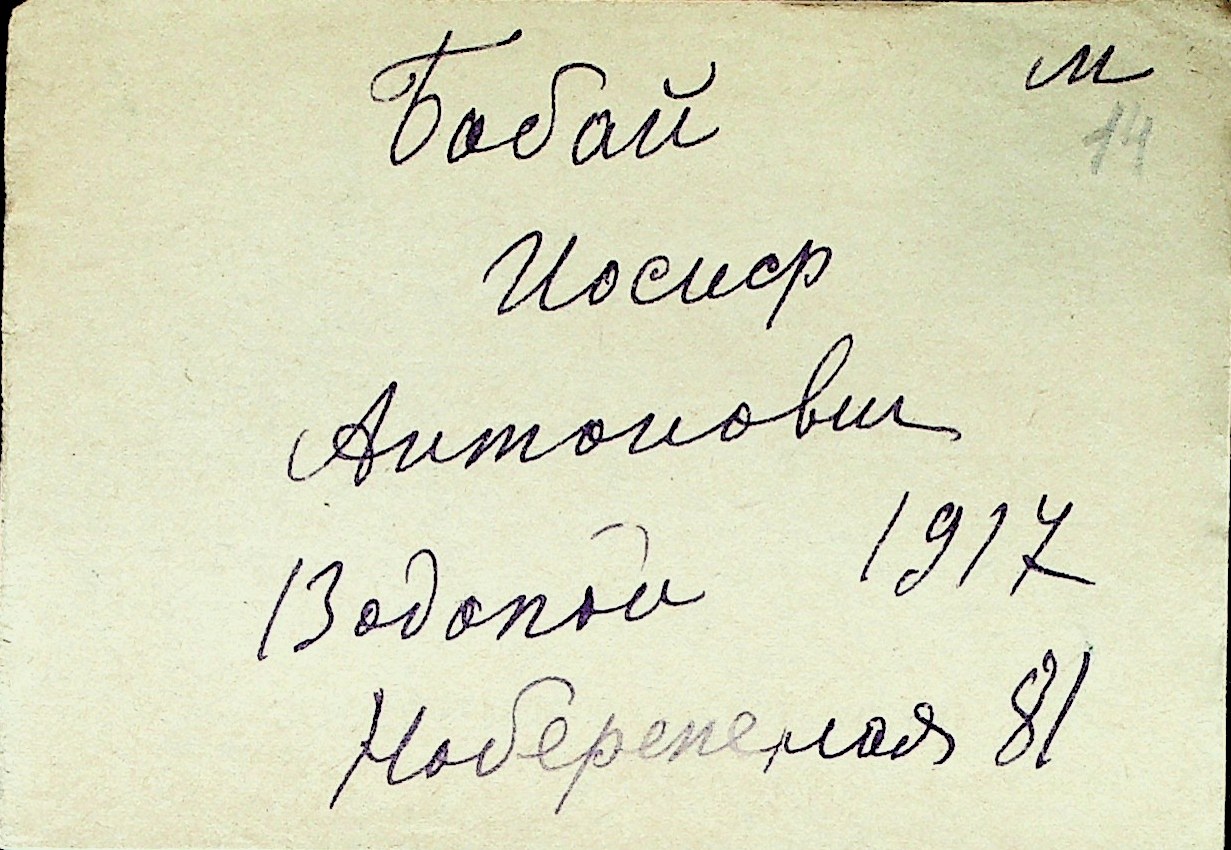 Бабай м
14
Иосиф
Антонович
Водопой 1917
Набережная 81